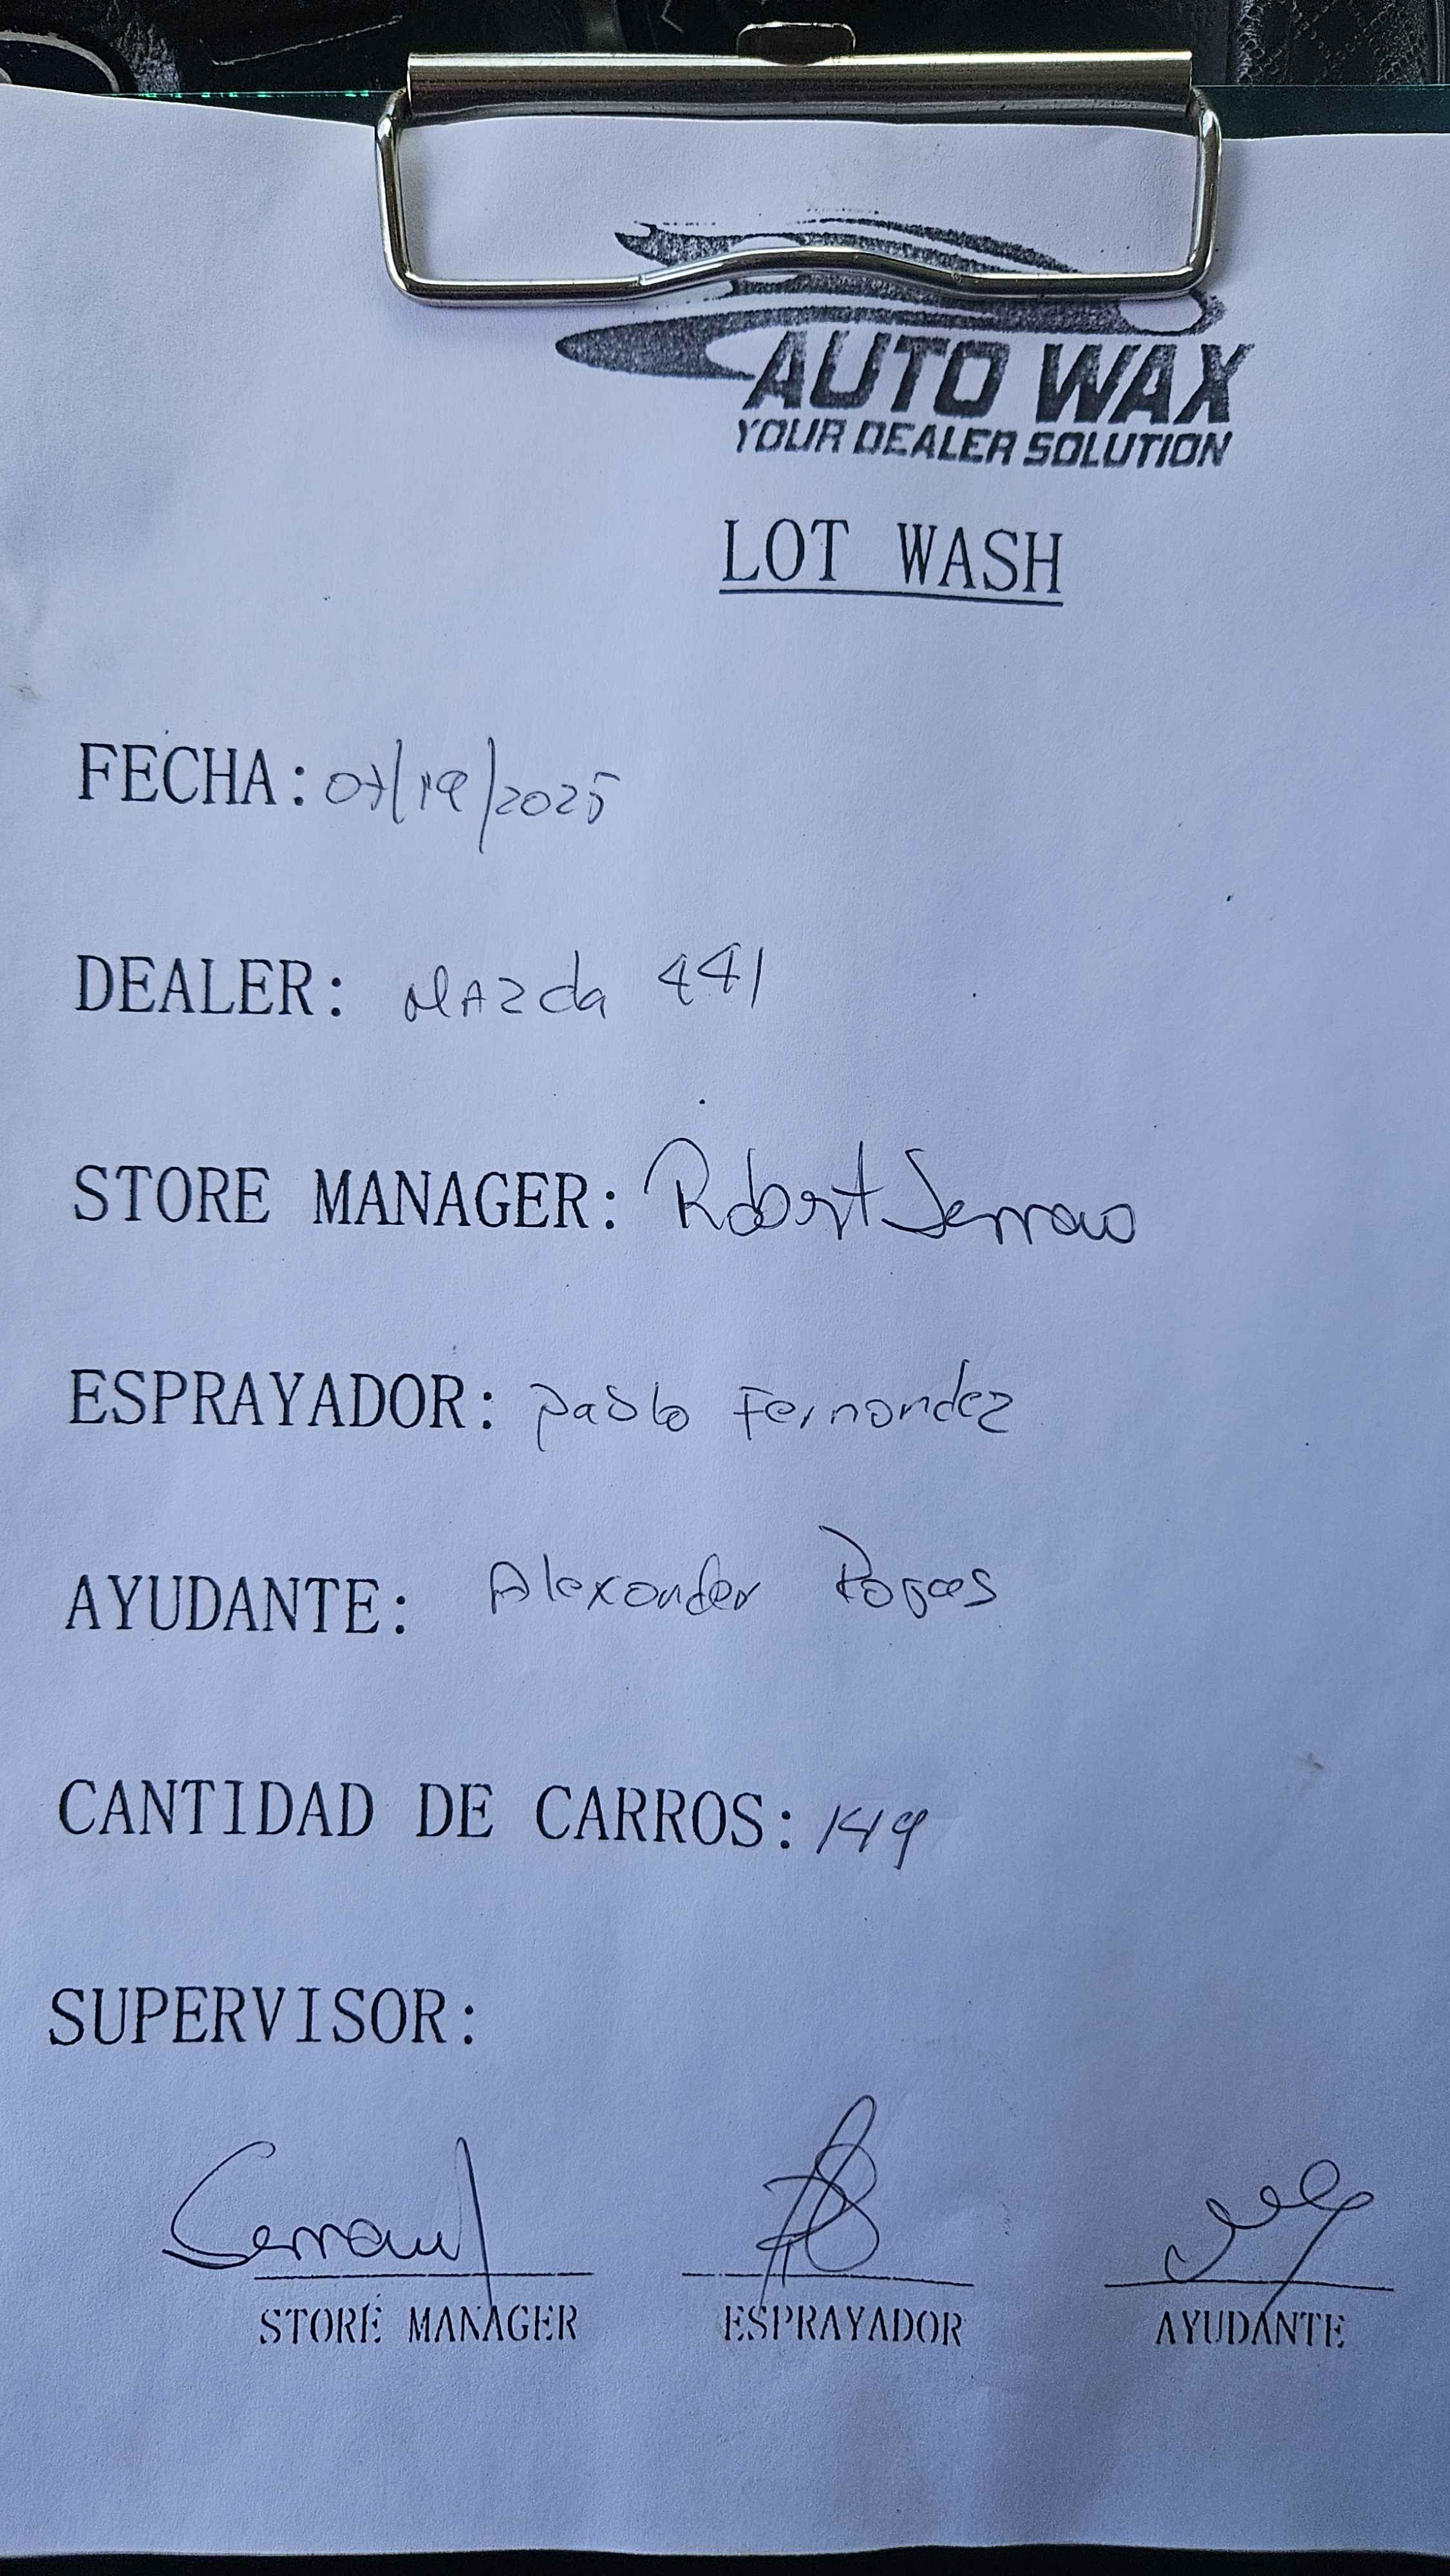 AUTO WAX
YOUR DEALER SOLUTION
LOT WASH
FECHA: 07/19/2025
DEALER: Mazda 441
STORE MANAGER: Robert Serrano
ESPRAYADOR: pablo Fernandez
AYUDANTE: Alexander Rojas
CANTIDAD DE CARROS: 149
SUPERVISOR:
STORE MANAGER ESPRAYADOR AYUDANTE